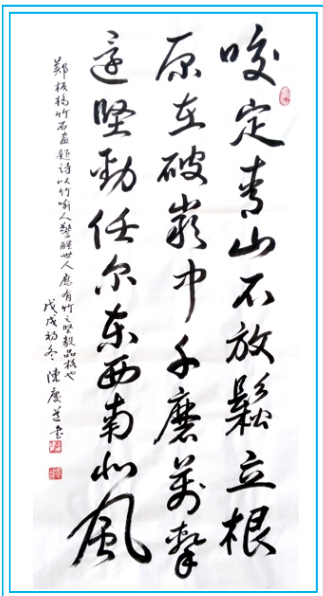 咬定青山不放鬆立根
原在破岩中千磨萬擊
還堅勁任尔东西南北風
鄭板橋竹石畫題詩以竹喻人警醒世人應有竹之堅毅品格也
戊戌初冬 陳慶書